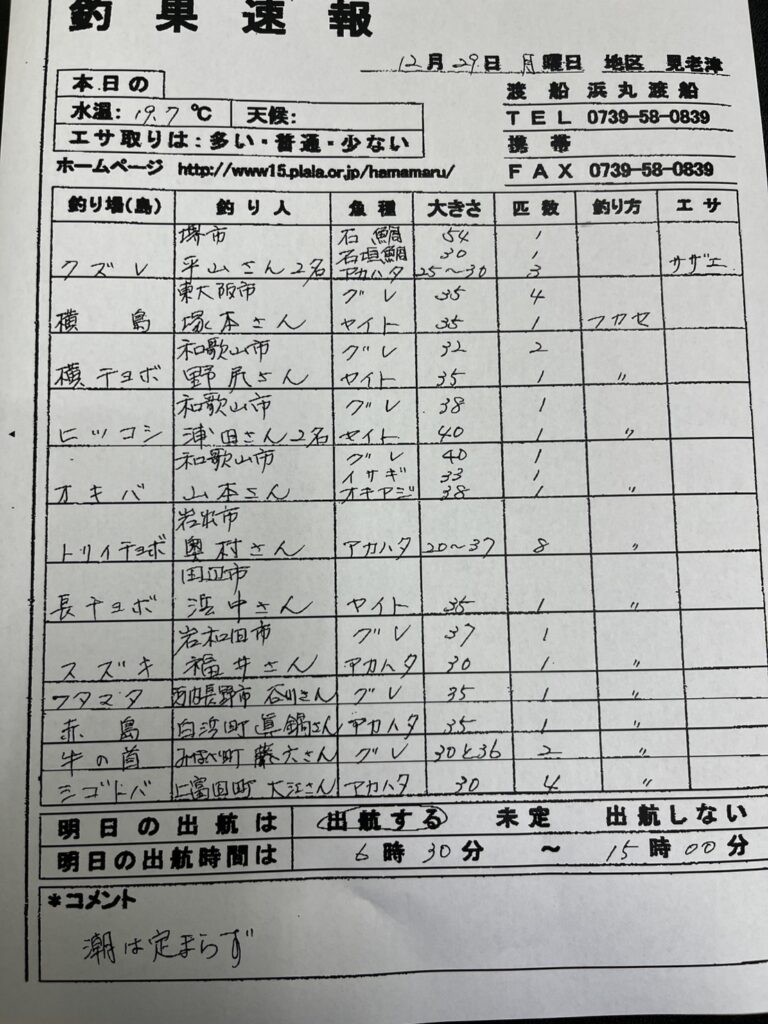 釣果速報
12月29日 月曜日 地区 見老津
本日の
水温: 19.7 ℃ 天候:
エサ取りは:多い・普通・少ない
渡船 浜丸渡船
TEL 0739-58-0839
携帯
FAX 0739-58-0839
ホームページ http://www15.plala.or.jp/hamamaru/
釣り場(島) 釣り人 魚種 大きさ 匹数 釣り方 エサ
堺市 石鯛 54 1
石垣鯛 30 1
クズレ 平山さん2名 アカハタ 25〜30 3 サザエ
東大阪市 グレ 35 4
横島 塚本さん ヤイト 35 1 フカセ
和歌山市 グレ 32 2
横チョボ 野尻さん ヤイト 35 1 〃
和歌山市 グレ 38 1
ヒッコシ 浦田さん2名 ヤイト 40 1 〃
和歌山市 グレ 40 1
イサギ 33 1
オキバ 山本さん オキアジ 38 1 〃
岩出市
トリイチョボ 奥村さん アカハタ 20〜37 8 〃
田辺市
長チョボ 浜中さん ヤイト 35 1 〃
岸和田市 グレ 37 1
スズキ 福井さん アカハタ 30 1 〃
フタマタ 河内長野市 谷川さん グレ 35 1 〃
赤島 白浜町 真鍋さん アカハタ 35 1 〃
牛の首 みなべ町 藤六さん グレ 30と36 2 〃
シゴトバ 上富田町 大江さん アカハタ 30 4 〃
明日の出航は 出航する 未定 出航しない
明日の出航時間は 6時30分 〜 15時00分
*コメント
潮は定まらず